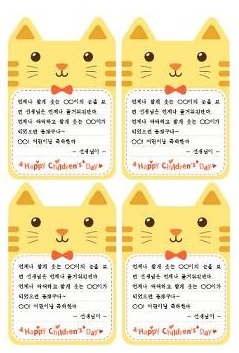 언제나 밝게 웃는 OO이의 눈을 보
면 선생님은 언제나 즐거워진단다.
언제나 씩씩하고 밝게 웃는 OO이가
되었으면 좋겠구나~
OO! 어린이날 축하한다
- 선생님이 -
Happy Children's Day
언제나 밝게 웃는 OO이의 눈을 보
면 선생님은 언제나 즐거워진단다.
언제나 씩씩하고 밝게 웃는 OO이가
되었으면 좋겠구나~
OO! 어린이날 축하한다
- 선생님이 -
Happy Children's Day
언제나 밝게 웃는 OO이의 눈을 보
면 선생님은 언제나 즐거워진단다.
언제나 씩씩하고 밝게 웃는 OO이가
되었으면 좋겠구나~
OO! 어린이날 축하한다
- 선생님이 -
Happy Children's Day
언제나 밝게 웃는 OO이의 눈을 보
면 선생님은 언제나 즐거워진단다.
언제나 씩씩하고 밝게 웃는 OO이가
되었으면 좋겠구나~
OO! 어린이날 축하한다
- 선생님이 -
Happy Children's Day